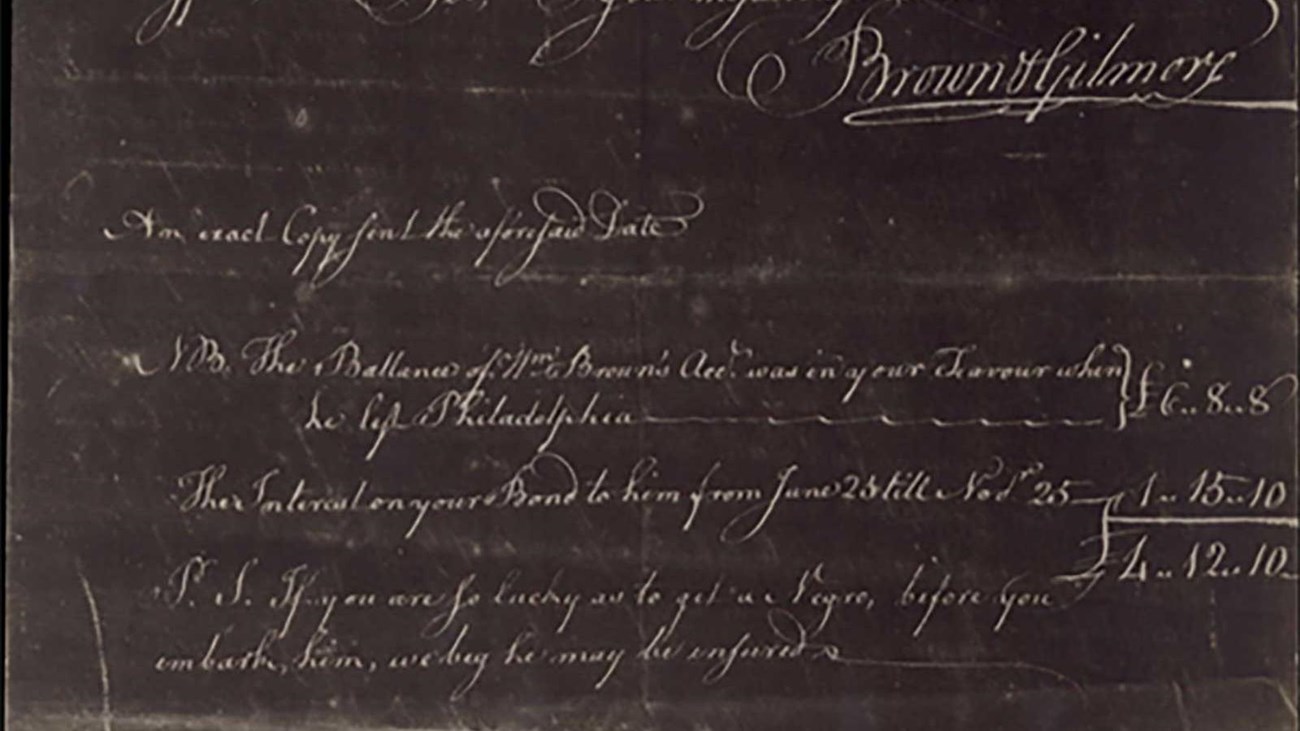 Brown & Gilmore
An exact Copy sent the aforesaid Date
NB. The Ballance of Wm. Brown's Acct. was in your Favour when } £ 6..8..8
he left Philadelphia
The Interest on your Bond to him from June 25 till Novr 25 1..15..10
£4..12..10
P. S. If you are so lucky as to get a Negro, before you
embark, him, we beg he may be insured